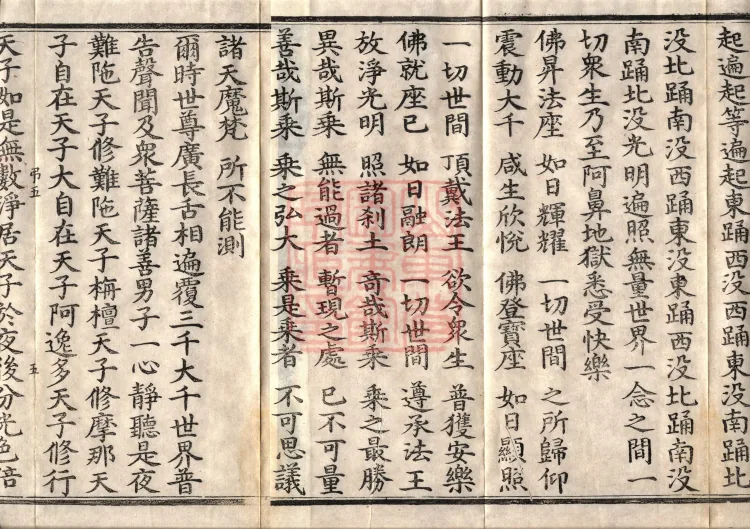 起遍起等遍起東踊西没西踊東没南踊北
没北踊南没西踊東没東踊西没北踊南没
南踊北没光明遍照無量世界一念之間一
切衆生乃至阿鼻地獄悉受快樂
佛昇法座 如日輝耀 一切世間 之所歸仰
震動大千 咸生欣悅 佛登寶座 如日顯照
一切世間 頂戴法王 欲令衆生 普獲安樂
佛就座已 如日融朗 一切世間 遵承法王
放淨光明 照諸刹土 奇哉斯乘 乘之最勝
異哉斯乘 無能過者 暫現之處 已不可量
善哉斯乘 乘之弘大 乘是乘者 不可思議
諸天魔梵 所不能測
爾時世尊廣長舌相遍覆三千大千世界普
告聲聞及衆菩薩諸善男子一心靜聽是夜
難陁天子修難陁天子栴檀天子修摩那天
子自在天子大自在天子阿逸多天子修行
弔五 五
天子如是無數淨居天子於夜後分光色倍